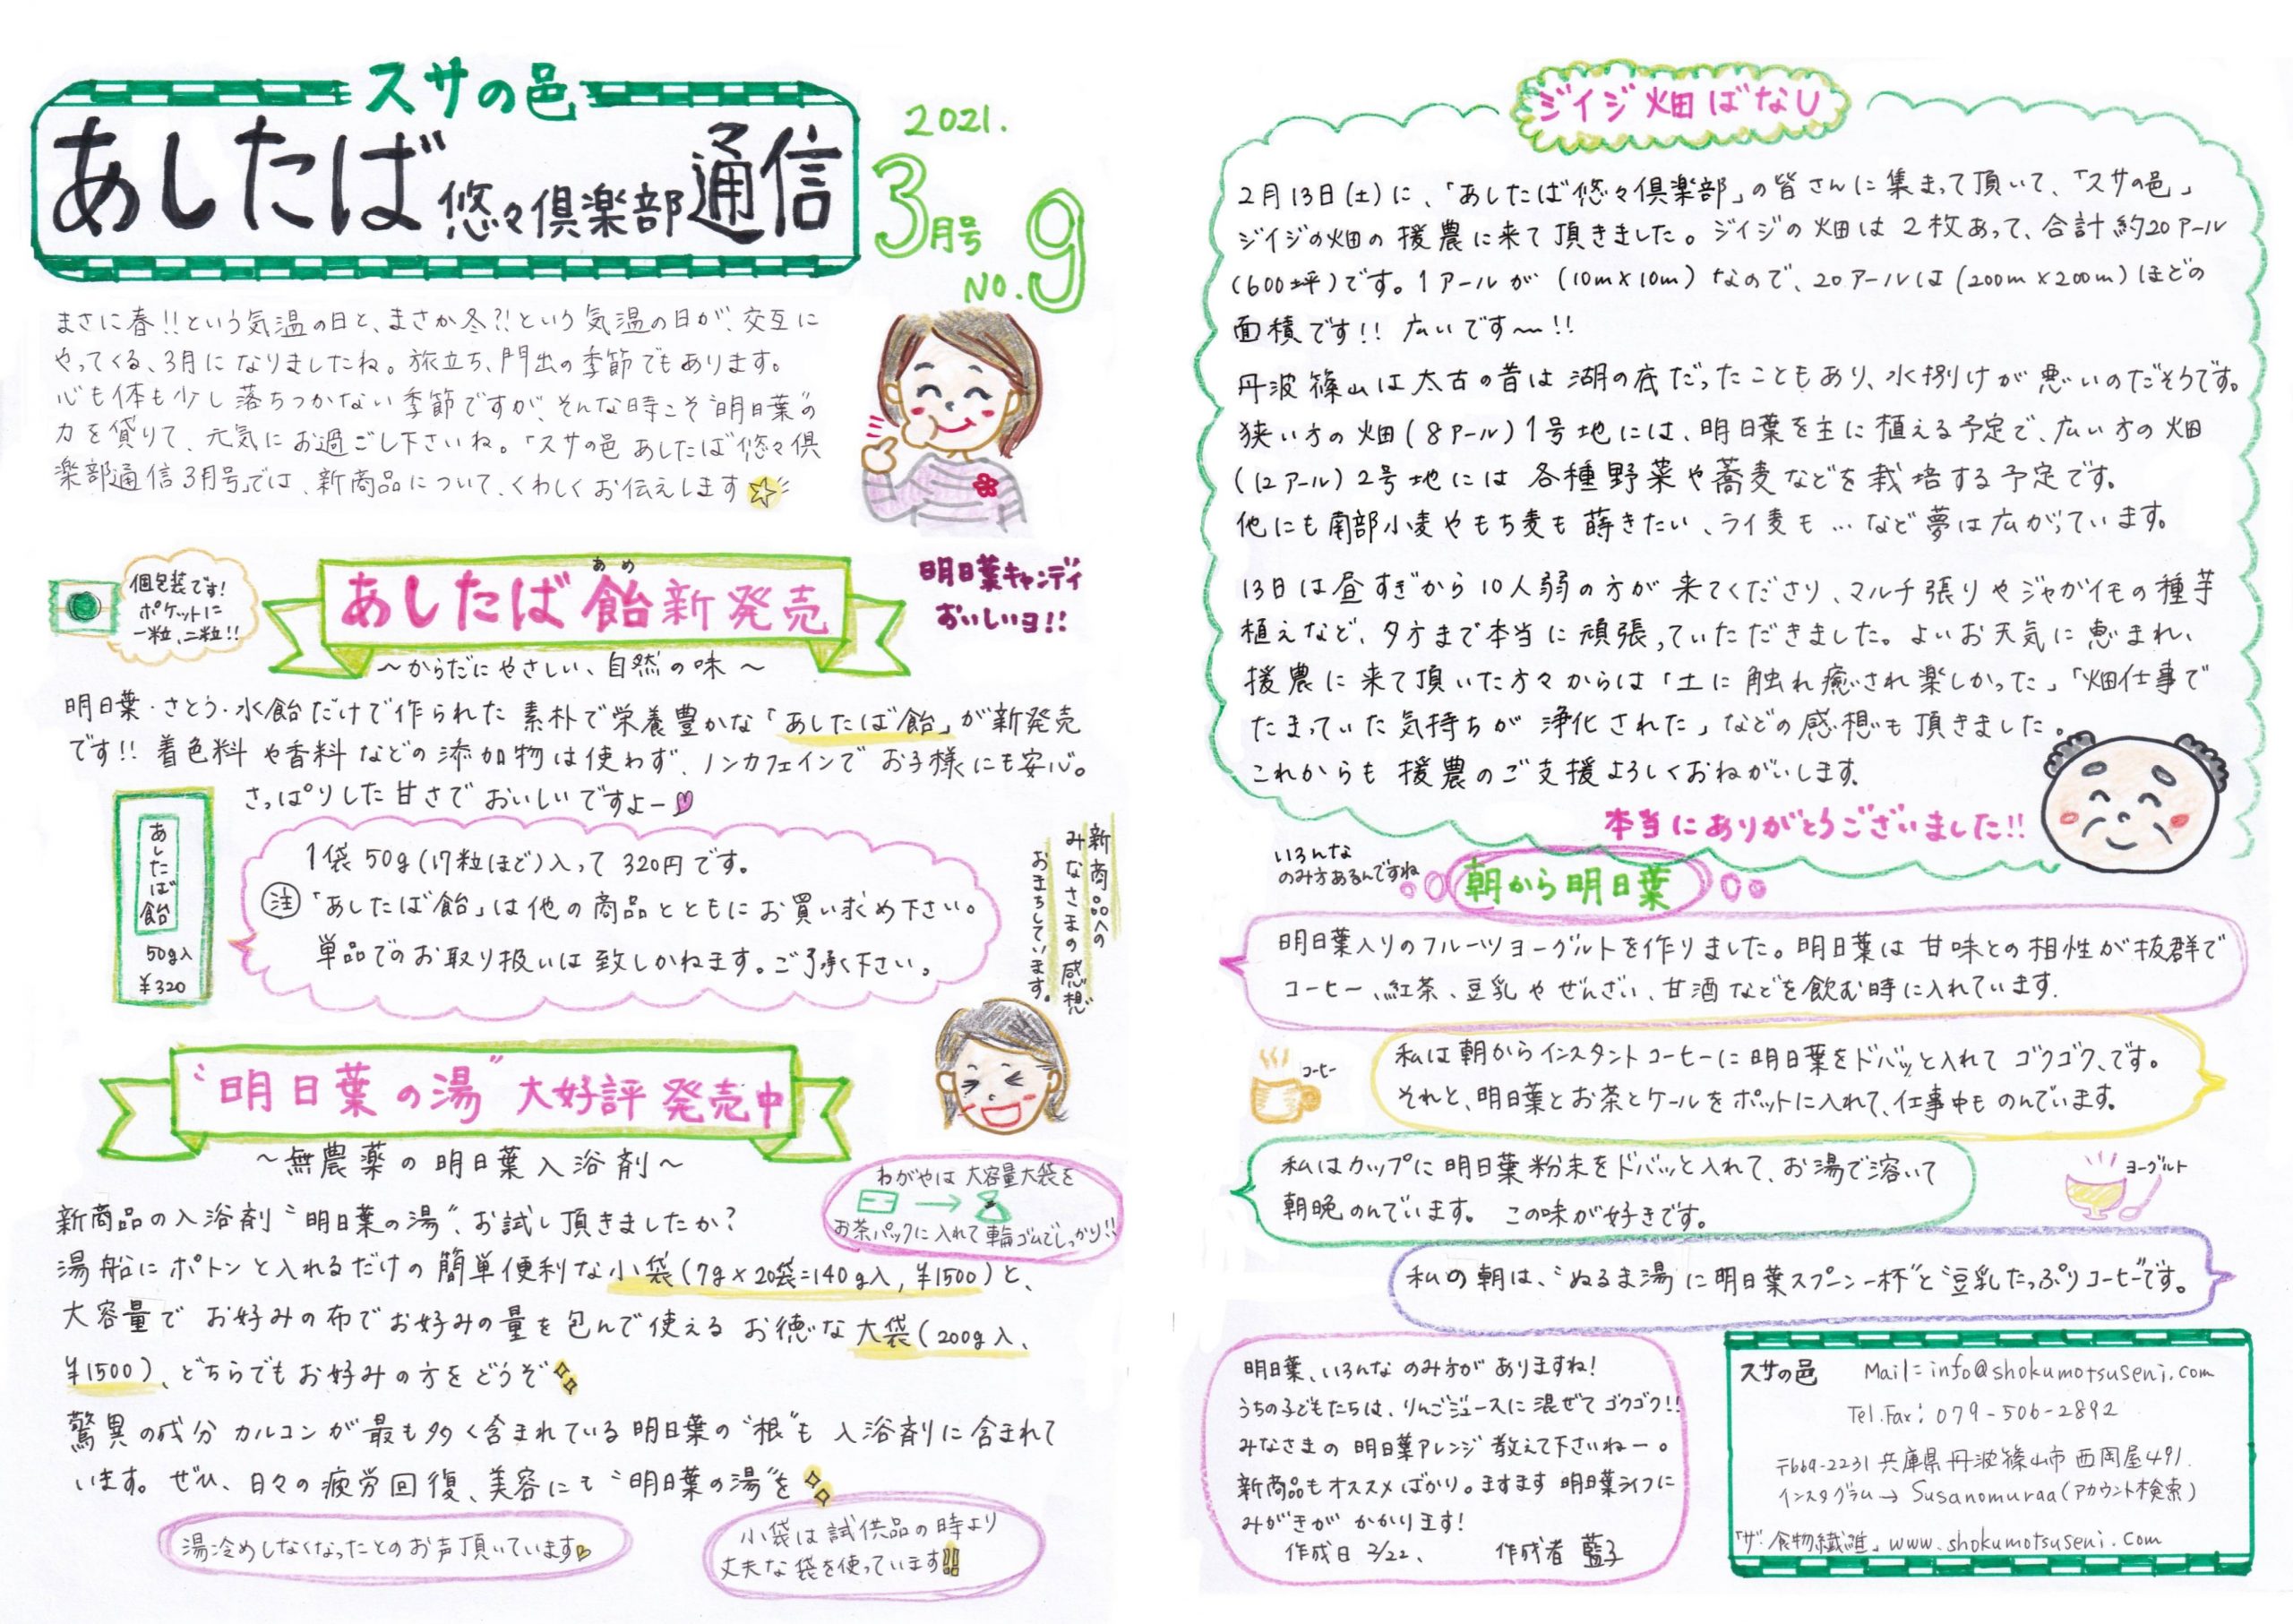 スサの邑
あしたば悠々倶楽部通信
2021.
3月号
NO.9
まさに春!!という気温の日と、まさか冬?!という気温の日が、交互に
やってくる、3月になりましたね。旅立ち、門出の季節でもあります。
心も体も少し落ちつかない季節ですが、そんな時こそ“明日葉”の
力を貸りて、元気にお過ごし下さいね。「スサの邑 あしたば悠々倶
楽部通信3月号」では、新商品について、くわしくお伝えします
個包装です!
ポケットに
一粒、二粒!!
あめ
あしたば飴新発売
明日葉キャンディ
おいしいヨ!!
～からだにやさしい、自然の味～
明日葉・さとう・水飴だけで作られた素朴で栄養豊かな「あしたば飴」が新発売
です!! 着色料や香料などの添加物は使わず、ノンカフェインでお子様にも安心。
さっぱりした甘さでおいしいですよー
あしたば飴
50g入
¥320
1袋50g(17粒ほど)入って320円です。
注「あしたば飴」は他の商品とともにお買い求め下さい。
単品でのお取り扱いは致しかねます。ご了承下さい。
新商品への
みなさまの感想
おまちしています。
“明日葉の湯”大好評発売中
～無農薬の明日葉入浴剤～
わがやは大容量大袋を
お茶パックに入れて輪ゴムでしっかり!!
新商品の入浴剤“明日葉の湯”、お試し頂きましたか?
湯船にポトンと入れるだけの簡単便利な小袋(7g×20袋=140g入,¥1500)と、
大容量でお好みの布でお好みの量を包んで使えるお徳な大袋(200g入、
¥1500)、どちらでもお好みの方をどうぞ
驚異の成分カルコンが最も多く含まれている明日葉の“根”も入浴剤に含まれて
います。ぜひ、日々の疲労回復、美容にも“明日葉の湯”を
湯冷めしなくなったとのお声頂いています
小袋は試供品の時より
丈夫な袋を使っています!!
ジイジ畑ばなし
2月13日(土)に、「あしたば悠々倶楽部」の皆さんに集まって頂いて、「スサの邑」
ジイジの畑の援農に来て頂きました。ジイジの畑は2枚あって、合計約20アール
(600坪)です。1アールが(10m×10m)なので、20アールは(200m×200m)ほどの
面積です!! 広いです～!!
丹波篠山は太古の昔は湖の底だったこともあり、水捌けが悪いのだそうです。
狭い方の畑(8アール)1号地には、明日葉を主に植える予定で、広い方の畑
(12アール)2号地には各種野菜や蕎麦などを栽培する予定です。
他にも南部小麦やもち麦も蒔きたい、ライ麦も…など夢は広がっています。
13日は昼すぎから10人弱の方が来てくださり、マルチ張りやジャガイモの種芋
植えなど、夕方まで本当に頑張っていただきました。よいお天気に恵まれ、
援農に来て頂いた方々からは「土に触れ癒され楽しかった」「畑仕事で
たまっていた気持ちが浄化された」などの感想も頂きました。
これからも援農のご支援よろしくおねがいします。
本当にありがとうございました!!
いろんな
のみ方あるんですね
朝から明日葉
明日葉入りのフルーツヨーグルトを作りました。明日葉は甘味との相性が抜群で
コーヒー、紅茶、豆乳やぜんざい、甘酒などを飲む時に入れています.
コーヒー
私は朝からインスタントコーヒーに明日葉をドバッと入れてゴクゴク、です。
それと、明日葉とお茶とケールをポットに入れて、仕事中ものんでいます。
私はカップに明日葉粉末をドバッと入れて、お湯で溶いて
朝晩のんでいます。 この味が好きです。
ヨーグルト
私の朝は、“ぬるま湯に明日葉スプーン一杯”と“豆乳たっぷりコーヒー”です。
明日葉、いろんなのみ方がありますね!
うちの子どもたちは、りんごジュースに混ぜてゴクゴク!!
みなさまの明日葉アレンジ教えて下さいねー。
新商品もオススメばかり。ますます明日葉ライフに
みがきがかかります!
作成日 2/22、 作成者 藍子
スサの邑 Mail:info@shokumotsuseni.com
Tel.Fax:079-506-2892
〒669-2231 兵庫県丹波篠山市西岡屋491.
インスタグラム→Susanomuraa(アカウント検索)
「ザ・食物繊維」www.shokumotsuseni.com